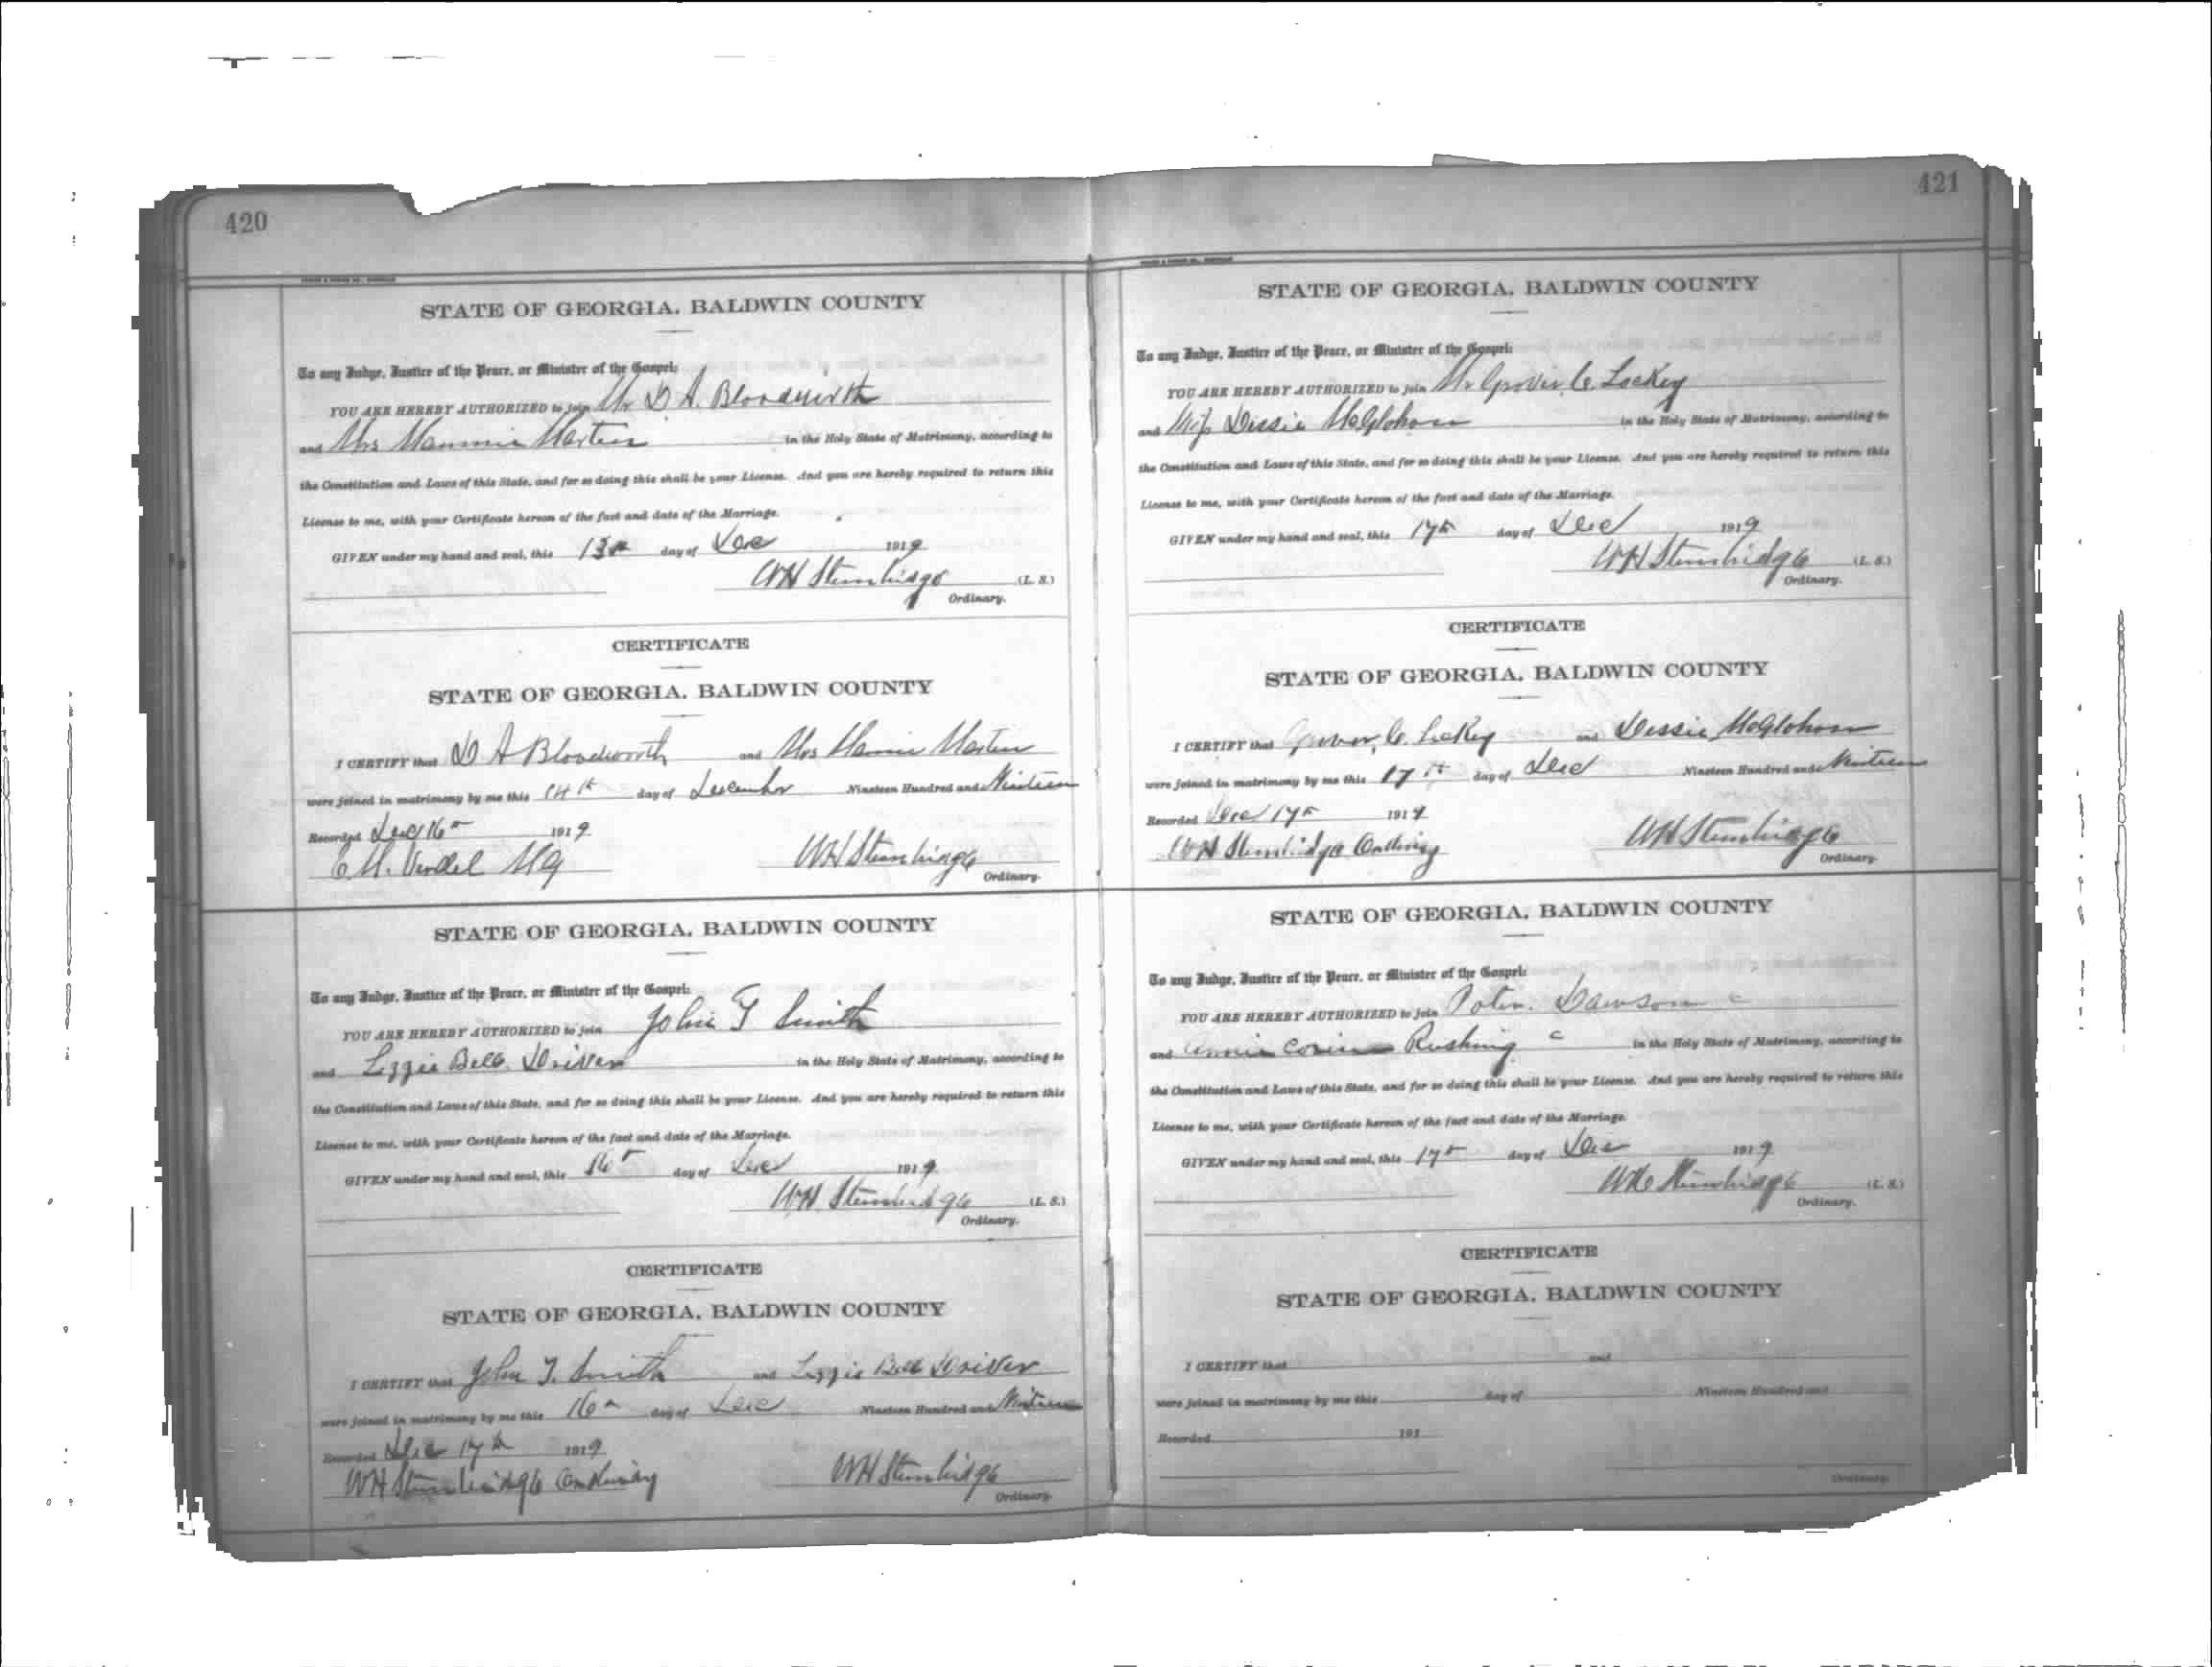 420
STATE OF GEORGIA, BALDWIN COUNTY
To any Judge, Justice of the Peace, or Minister of the Gospel:
YOU ARE HEREBY AUTHORIZED to join Mr D A. Bloodworth
and Mrs Mammie Martin in the Holy State of Matrimony, according to
the Constitution and Laws of this State, and for so doing this shall be your License. And you are hereby required to return this
License to me, with your Certificate hereon of the fact and date of the Marriage.
GIVEN under my hand and seal, this 13th day of Dec 1919
WH Stembridge (L. S.)
Ordinary.
CERTIFICATE
STATE OF GEORGIA, BALDWIN COUNTY
I CERTIFY that D A Bloodworth and Mrs Mamie Martin
were joined in matrimony by me this 14th day of December Nineteen Hundred and Nineteen
Recorded Dec 16th 1919
C. M. MG WH Stembridge
Ordinary.
STATE OF GEORGIA, BALDWIN COUNTY
To any Judge, Justice of the Peace, or Minister of the Gospel:
YOU ARE HEREBY AUTHORIZED to join John T Smith
and Lizzie Bell Driver in the Holy State of Matrimony, according to
the Constitution and Laws of this State, and for so doing this shall be your License. And you are hereby required to return this
License to me, with your Certificate hereon of the fact and date of the Marriage.
GIVEN under my hand and seal, this 16th day of Dec 1919
WH Stembridge (L. S.)
Ordinary.
CERTIFICATE
STATE OF GEORGIA, BALDWIN COUNTY
I CERTIFY that John T. Smith and Lizzie Bell Driver
were joined in matrimony by me this 16th day of Dec Nineteen Hundred and Nineteen
Recorded Dec 17th 1919
WH Stembridge Ordinary WH Stembridge
Ordinary.
421
STATE OF GEORGIA, BALDWIN COUNTY
To any Judge, Justice of the Peace, or Minister of the Gospel:
YOU ARE HEREBY AUTHORIZED to join Mr Grover C. Lackey
and Miss Dessie McGlohorn in the Holy State of Matrimony, according to
the Constitution and Laws of this State, and for so doing this shall be your License. And you are hereby required to return this
License to me, with your Certificate hereon of the fact and date of the Marriage.
GIVEN under my hand and seal, this 17th day of Dec 1919
WH Stembridge (L. S.)
Ordinary.
CERTIFICATE
STATE OF GEORGIA, BALDWIN COUNTY
I CERTIFY that Grover C. Lackey and Dessie McGlohorn
were joined in matrimony by me this 17th day of Dec Nineteen Hundred and Nineteen
Recorded Dec 17th 1919
WH Stembridge Ordinary WH Stembridge
Ordinary.
STATE OF GEORGIA, BALDWIN COUNTY
To any Judge, Justice of the Peace, or Minister of the Gospel:
YOU ARE HEREBY AUTHORIZED to join Dawson c
and Annie Rushing c in the Holy State of Matrimony, according to
the Constitution and Laws of this State, and for so doing this shall be your License. And you are hereby required to return this
License to me, with your Certificate hereon of the fact and date of the Marriage.
GIVEN under my hand and seal, this 17th day of Dec 1919
WH Stembridge (L. S.)
Ordinary.
CERTIFICATE
STATE OF GEORGIA, BALDWIN COUNTY
I CERTIFY that and
were joined in matrimony by me this day of Nineteen Hundred and
Recorded 191
Ordinary.